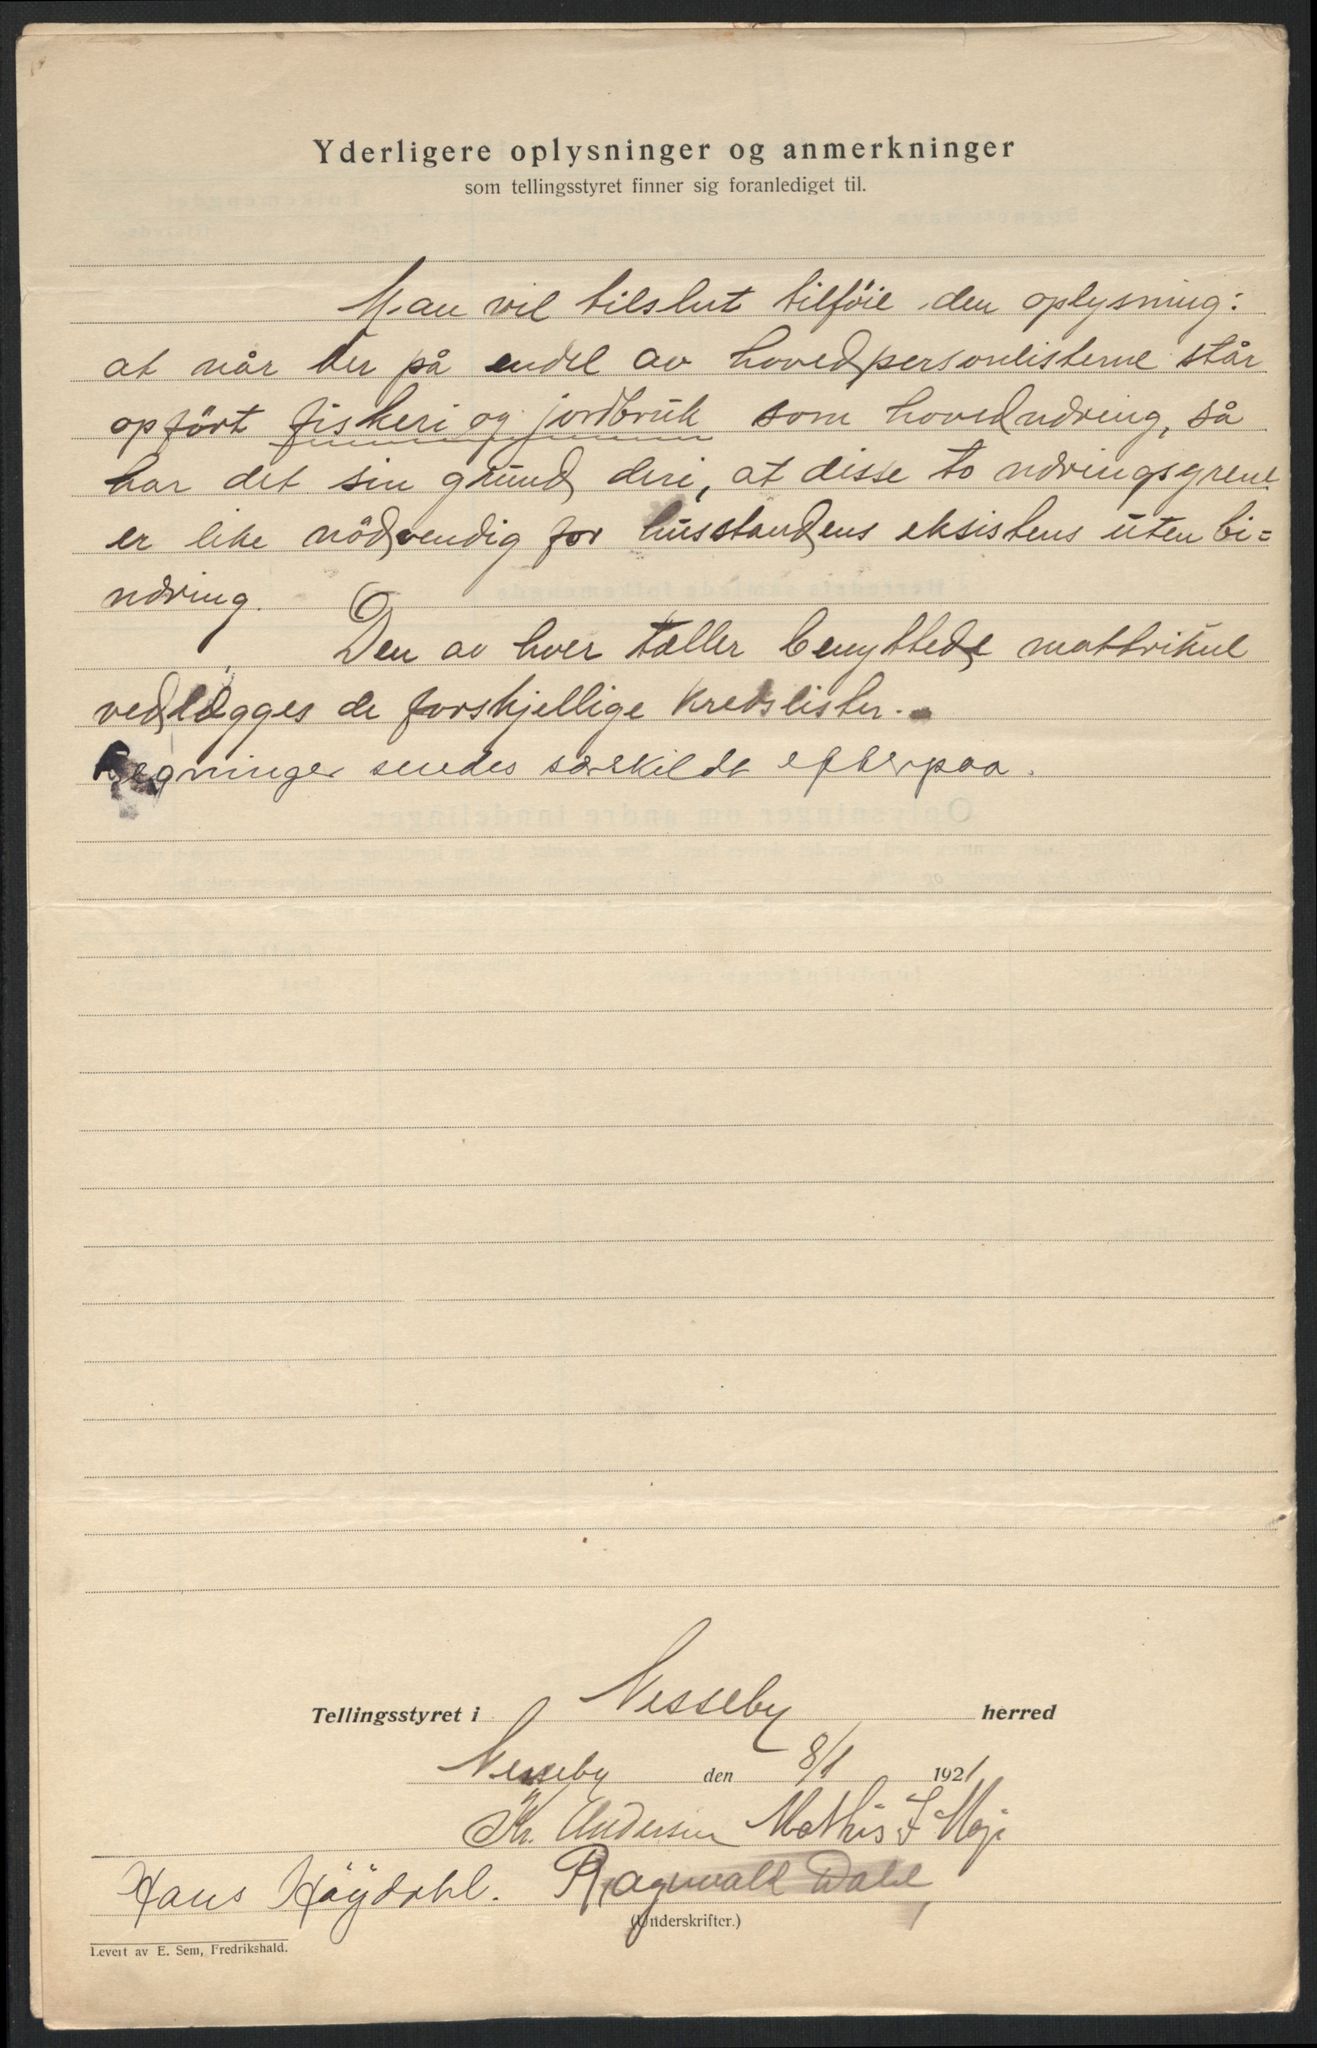 Yderligere oplysninger og anmerkninger
som tellingsstyret finner sig foranlediget til.
Man vil tilslut tilføie den oplysning:
at når der på endel av hovedpersonlisterne står
opført fiskeri og jordbruk som hovednæring, så
har det sin grund deri, at disse to næringsgrene
er like nödvendig for husstandens eksistens uten bi=
næring.
Den av hver tæller benyttede mattrikul
vedlægges de forskjellige kredslister.
Regninger sendes særskildt efterpaa.
Tellingsstyret i Nesseby herred
Nesseby den 8/1 1921
Kr. Andersen Mathis I
Hans Höÿdahl. Ragnvald Dahl
(Underskrifter.)
Levert av E. Sem, Fredrikshald.